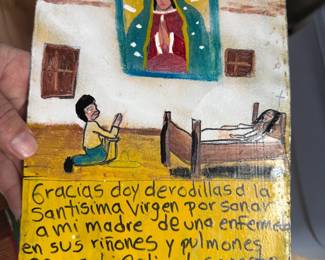 Gracias doy derodillas a la
Santisima Virgen por sanar
a mi madre de una enfermeda
en sus riñones y pulmones